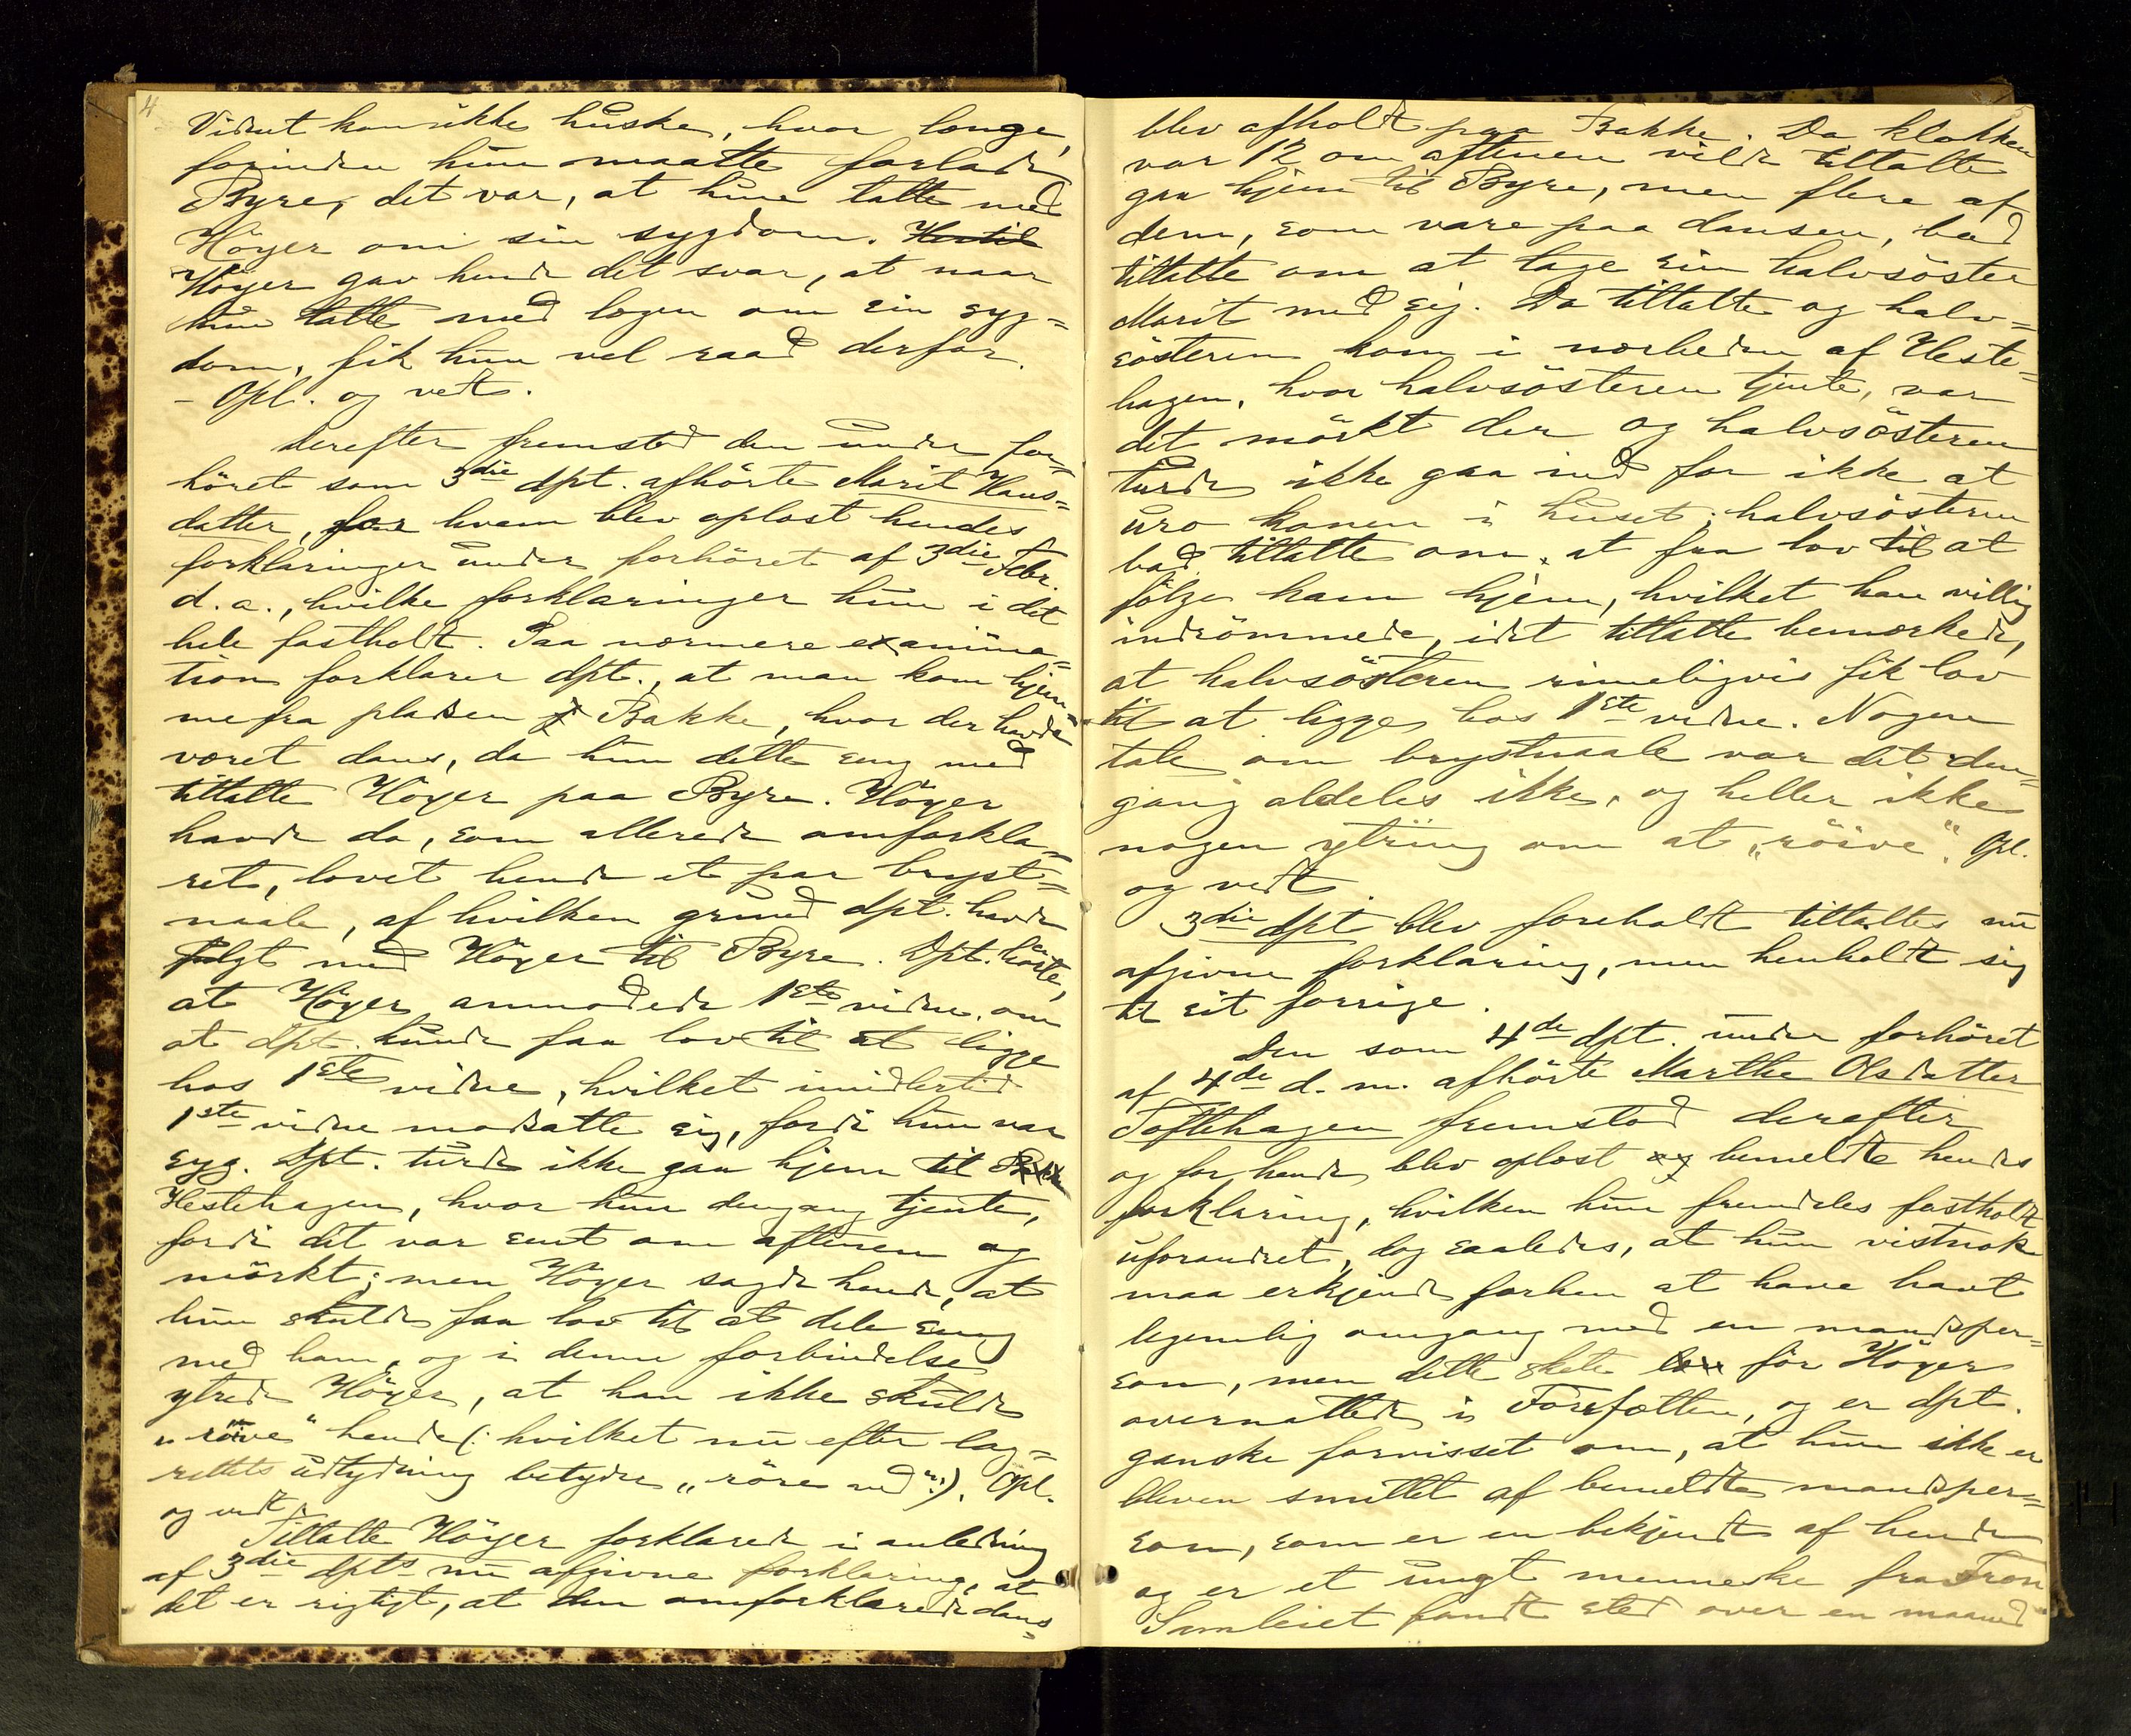 4
Vidnet kan ikke huske, hvor længe,
forinden hun maatte forlade
Byre, det var, at hun talte med
Höyer om sin sygdom. Hertil
Höyer gav hende det svar, at naar
hun talte med lægen om sin syg=
dom, fik hun vel raad derfor.
– Opl. og vedt.
Derefter fremstod den under for=
höret som 3die dpt. afhörte Marit Hans=
datter, for hvem blev oplæst hendes
forklaringer under forhöret af 3die Febr.
d. a., hvilke forklaringer hun i det
hele fastholdt. Paa nærmere examina=
tion forklarer dpt., at man kom hjem=
me fra pladsen Bakke, hvor der havde
været dans, da hun delte seng med
tiltalte Höyer paa Byre. Höyer
havde da, som allerede omforkla=
ret, lovet hende et par bryst=
naale, af hvilken grund dpt. havde
fulgt med Höyer til Byre. Dpt. hörte,
at Höyer anmodede 1ste vidne om
at dpt. kunde faa lov til at ligge
hos 1ste vidne, hvilket imidlertid
1ste vidne modsatte sig, fordi hun var
syg. Dpt. turde ikke gaa hjem til
Hestehagen, hvor hun dengang tjente,
fordi det var sent om aftenen og
mörkt; men Höyer sagde hende, at
hun skulde faa lov til at dele seng
med ham, og i denne forbindelse
ytrede Höyer, at han ikke skulde
„röive" hende (: hvilket nu efter lag=
rettets udtydning betyder „röre ved":). Opl.
og vedt.
Tiltalte Höyer forklarede i anledning
af 3die dpts nu afgivne forklaring, at
det er rigtigt, at den omforklarede dans
blev afholdt paa Bakke. Da klokken
var 12 om aftenen vilde tiltalte
gaa hjem til Byre, men flere af
dem, som vare paa dansen, bad
tiltalte om at tage sin halvsöster
Marit med sig. Da tiltalte og halv=
sösteren kom i nærheden af Heste=
hagen, hvor halvsösteren tjente, var
det mörkt der og halvsösteren
turde ikke gaa ind for ikke at
uro konen i huset; halvsösteren
bad tiltalte om at faa lov til at
fölge ham hjem, hvilket han villig
indrömmede, idet tiltalte bemærkede,
at halvsösteren rimeligvis fik lov
til at ligge hos 1ste vidne. Nogen
tale om brystnaale var det den=
gang aldeles ikke, og heller ikke
nogen ytring om at „röive". Opl.
og vedt.
3die dpt blev foreholdt tiltaltes nu
afgivne forklaring, men henholdt sig
til sit forrige.
Den som 4de dpt. under forhöret
af 4de d. m. afhörte Marthe Olsdatter
Toftehagen fremstod derefter
og for hende blev oplæst bemeldte hendes
forklaring, hvilken hun fremdeles fastholdt
uforandret, dog saaledes, at hun vistnok
maa erkjende forhen at have havt
legemlig omgang med en mandsper=
son, men dette skete för Höyer
overnattede i Forrfotten, og er dpt.
ganske forvisset om, at hun ikke er
bleven smittet af bemeldte mandsper=
son, som er en bekjendt af hende
og er et ungt menneske fra Fron
Samleiet fandt sted over en maaned